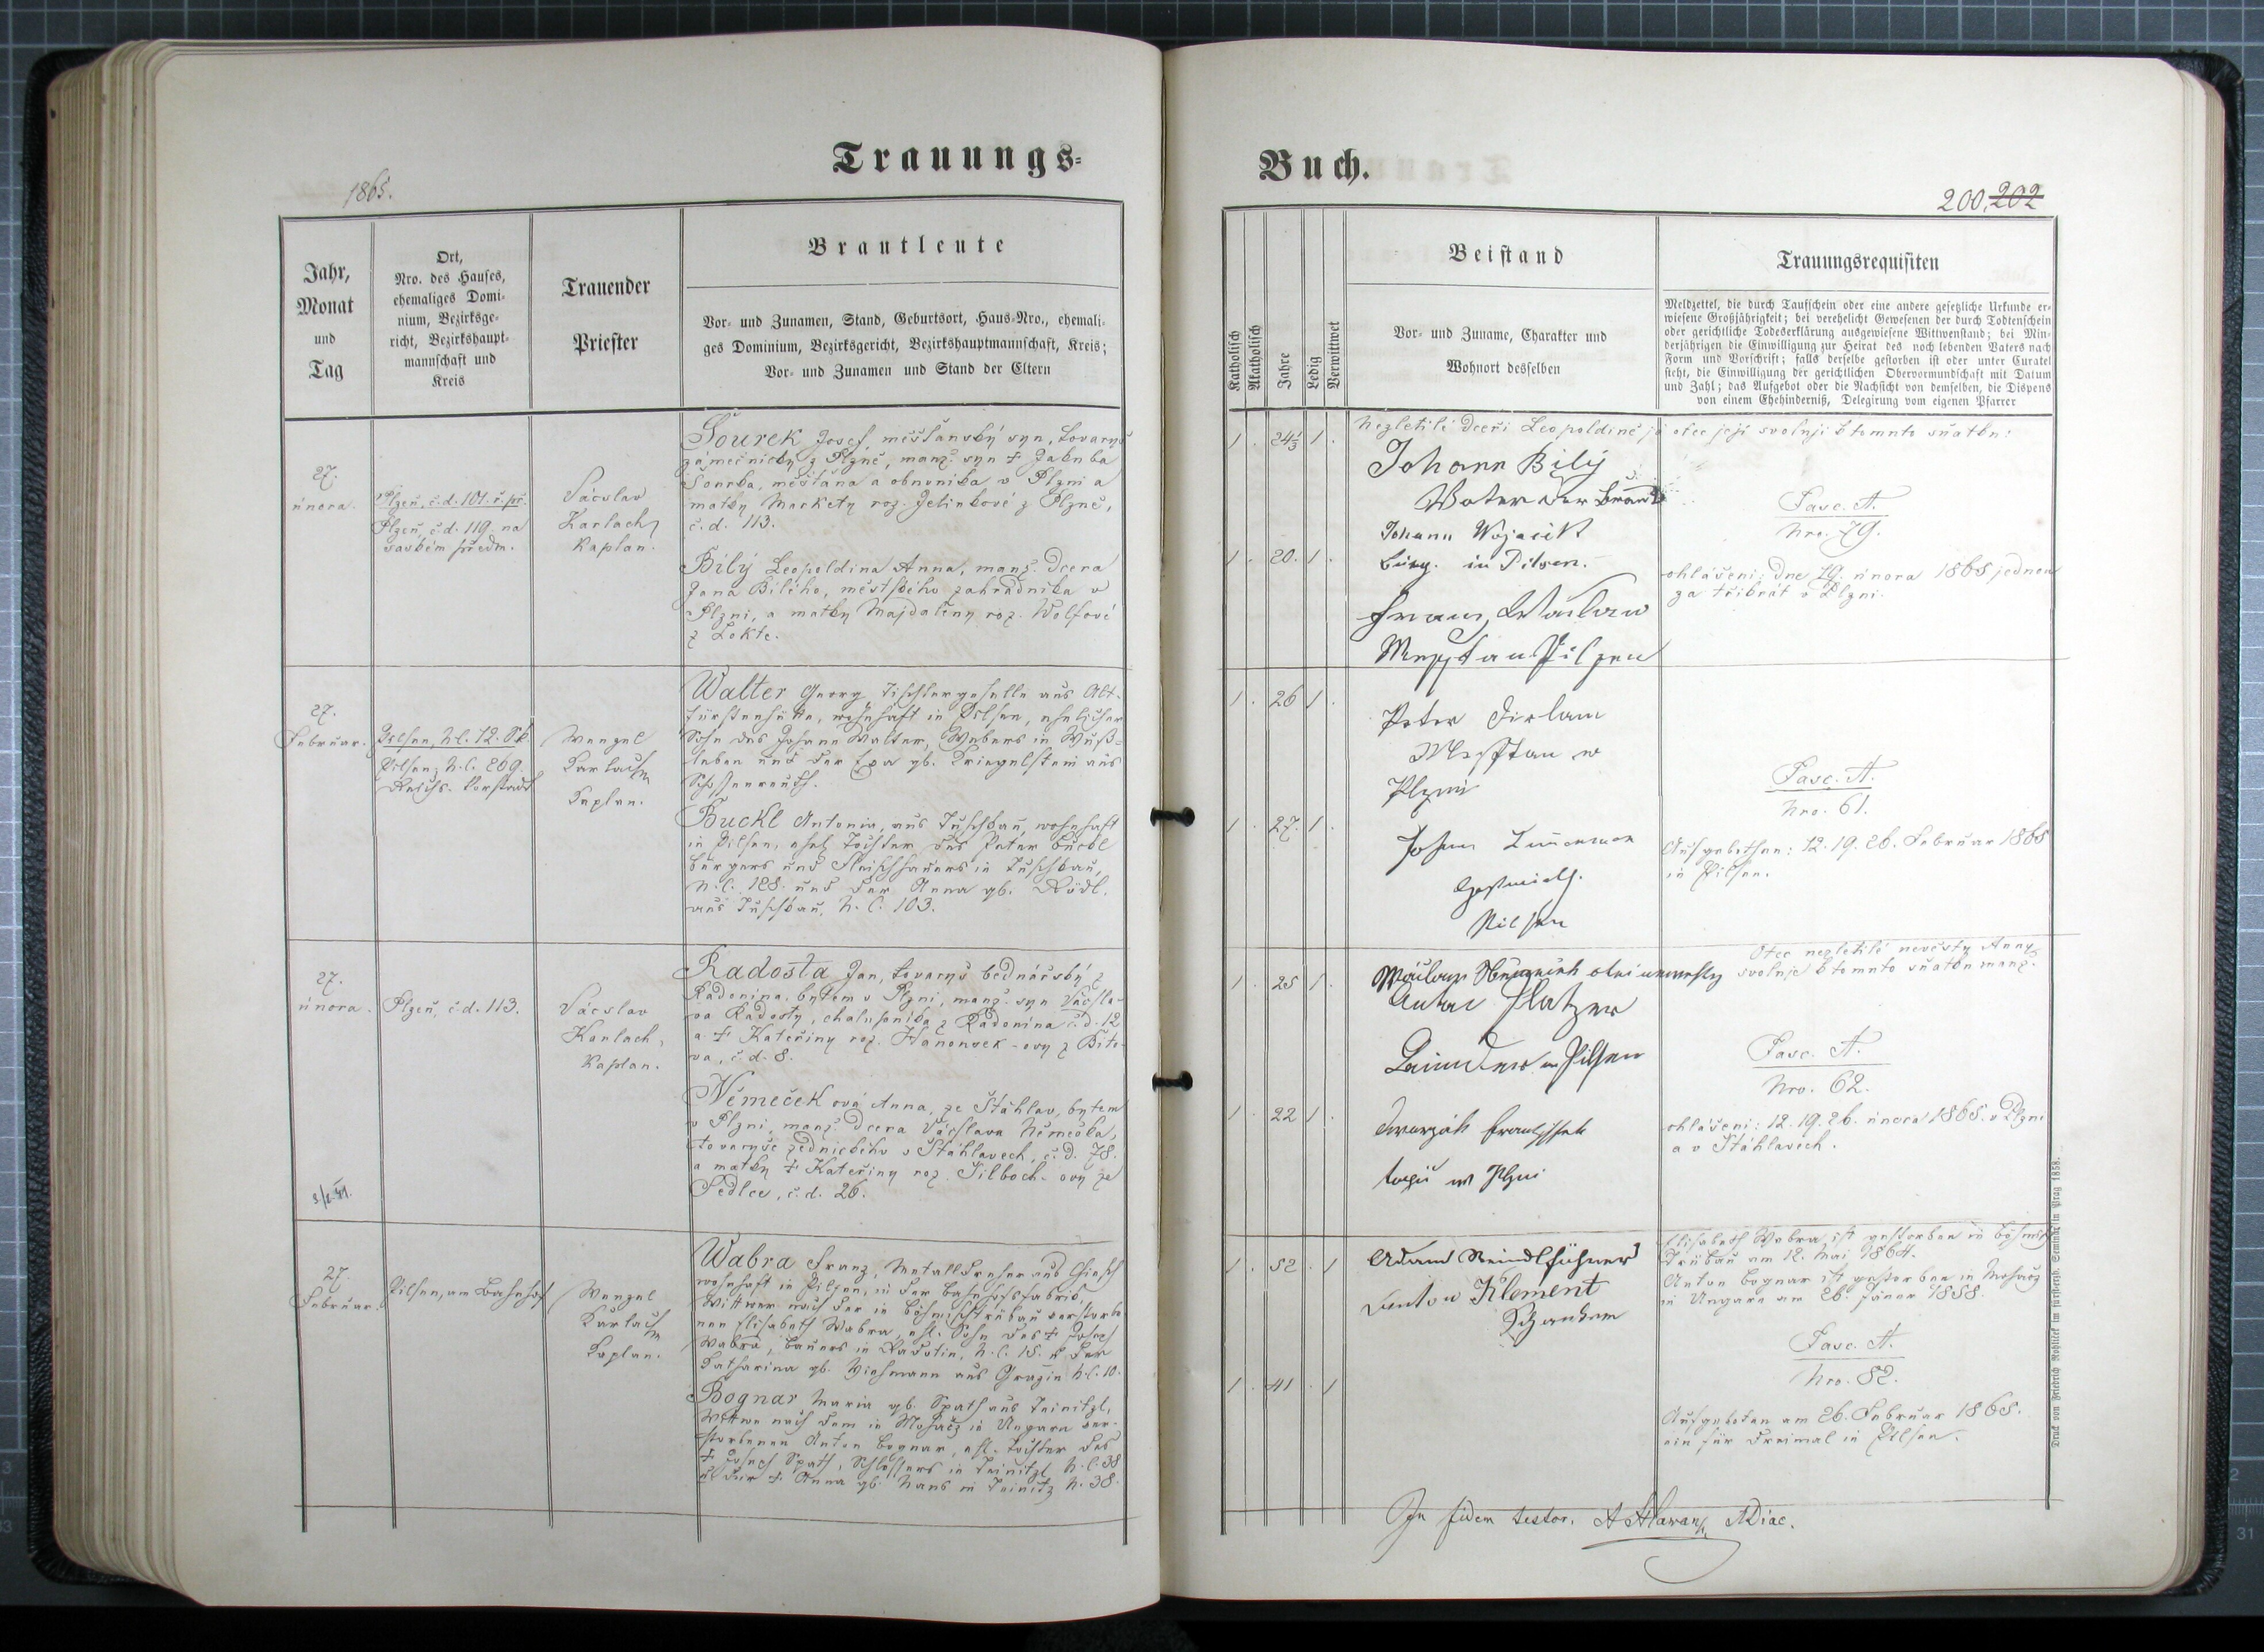 Trauungs-
1865.
Jahr,
Monat
und
Tag
Ort,
Nro. des Hauses,
ehemaliges Domi-
nium, Bezirksge-
richt, Bezirkshaupt-
mannschaft und
Kreis
Trauender
Priester
Brautleute
Vor- und Zunamen, Stand, Geburtsort, Haus-Nro., ehemali-
ges Dominium, Bezirksgericht, Bezirkshauptmannschaft, Kreis;
Vor- und Zunamen und Stand der Eltern
27.
února.
Plzeň, č.d. 101. ř. př.
Plzeň, č.d. 119. na
saském předm.
Václav
Karlach,
Kaplan.
Šourek Josef, měšťanský syn, tovaryš
zámečnický z Plzně, manž. syn † Jakuba
Šourka, měšťana a obuvníka v Plzni a
matky Markety roz. Jelínkové z Plzně,
č.d. 113.
Bílý Leopoldina Anna, manž. dcera
Jana Bílého, městského zahradníka v
Plzni, a matky Majdaleny roz. Wolfové
z Lokte.
27.
Februar.
Pilsen, N.C. 12. Sk
Pilsen, N.C. 269.
Reichs-Vorstadt
Wenzel
Karlach
Kaplan.
Walter Georg, Tischlergeselle aus Alt-
fürstenhütte, wohnhaft in Pilsen, ehelicher
Sohn des Johann Walter, Webers in Wuß-
leben und der Eva gb. Kriegelstein aus
Schossenreuth.
Buckl Antonia, aus Tuschkau, wohnhaft
in Pilsen, ehel. Tochter des Peter Buckl
Bürgers und Fleischhauers in Tuschkau,
N.C. 128. und der Anna gb. Rödl.
aus Tuschkau, N.C. 103.
27.
února.
Plzeň, č.d. 113.
Václav
Karlach,
Kaplan.
Radosta Jan, tovaryš bednářský z
Radonina, bytem v Plzni, manž. syn Václa-
va Radosty, chalupníka z Radonina č.d. 12
a † Kateřiny roz. Hanousek-ovy z Bito-
va, č.d. 8.
Němeček ová Anna, ze Šťáhlav, bytem
v Plzni, manž. dcera Václava Němečka,
tovaryše zednického v Šťáhlavech, č.d. 78.
a matky † Kateřiny roz. Silboch-ovy ze
Sedlce, č.d. 26.
27.
Februar.
Pilsen, am Bahnhof
Wenzel
Karlach
Kaplan.
Wabra Franz, Metalldreher aus Chiesch
wohnhaft in Pilsen, in der Bahnhofsfabrik,
Wittwer nach der in Böhmischtrübau verstorbe-
nen Elisabeth Wabra, ehl. Sohn des † Josef
Wabra, Bauers in Radotin, N.C. 15. u der
Katharina gb. Wiehmann aus Grazin N.C. 10.
Bognar Maria gb. Spath aus Teinitzl,
Wittwe nach dem in Mohacz in Ungarn ver-
storbenen Anton Bognar, ehl. Tochter des
† Josef Spath, Schlossers in Teinitzl N.C. 38
u der † Anna gb. Hans in Teinitz N. 38.
Buch.
200. 202
Katholisch
Akatholisch
Jahre
Ledig
Verwittwet
Beistand
Vor- und Zuname, Charakter und
Wohnort desselben
Trauungsrequisiten
Meldzettel, die durch Taufschein oder eine andere gesetzliche Urkunde er-
wiesene Großjährigkeit; bei verehelicht Gewesenen der durch Todtenschein
oder gerichtliche Todeserklärung ausgewiesene Wittwenstand; bei Min-
derjährigen die Einwilligung zur Heirat des noch lebenden Vaters nach
Form und Vorschrift; falls derselbe gestorben ist oder unter Curatel
steht, die Einwilligung der gerichtlichen Obervormundschaft mit Datum
und Zahl; das Aufgebot oder die Nachsicht von demselben, die Dispens
von einem Ehehinderniß, Delegirung vom eigenen Pfarrer
1 . 24⅓ 1 .
Nezletilé dceři Leopoldině já otec její svoluji k tomuto sňatku:
Johann Bilij
Vater der Braut
Fasc. A.
Nro. 79.
Johann Wojacik
1 . 20. 1 .
bürg. in Pilsen.
ohlášeni: dne 19. února 1865 jednou
za třikrát v Plzni.
Pilzen
1 . 26 1 .
Peter Dirlam
Plzni
Fasc. A.
Nro. 61.
1 . 27. 1 .
Aufgebothen: 12. 19. 26. Februar 1865
in Pilsen.
Pilsen
Otec nezletilé nevěsty Anny
svoluje k tomuto sňatku manž.
1 . 25 1 .
Platzer
in Pilsen
Fasc. A.
Nro. 62.
1 . 22 1 .
ohlášeni: 12. 19. 26. února 1865. v Plzni
a v Šťáhlavech.
Elisabeth Wabra ist gestorben in Böhmisch
Trübau am 12. Mai 1864.
1 . 52 . 1
Adam
Anton Bognar ist gestorben in Mohacz
in Ungarn am 26. Jäner 1858.
Anton Klement
Fasc. A.
Nro. 82.
1 . 41 . 1
Aufgeboten am 26. Februar 1865.
ein für dreimal in Pilsen.
In fidem testor.
Druck von Friedrich Rohlicek im fürsterzb. Seminär im Prag 1858.